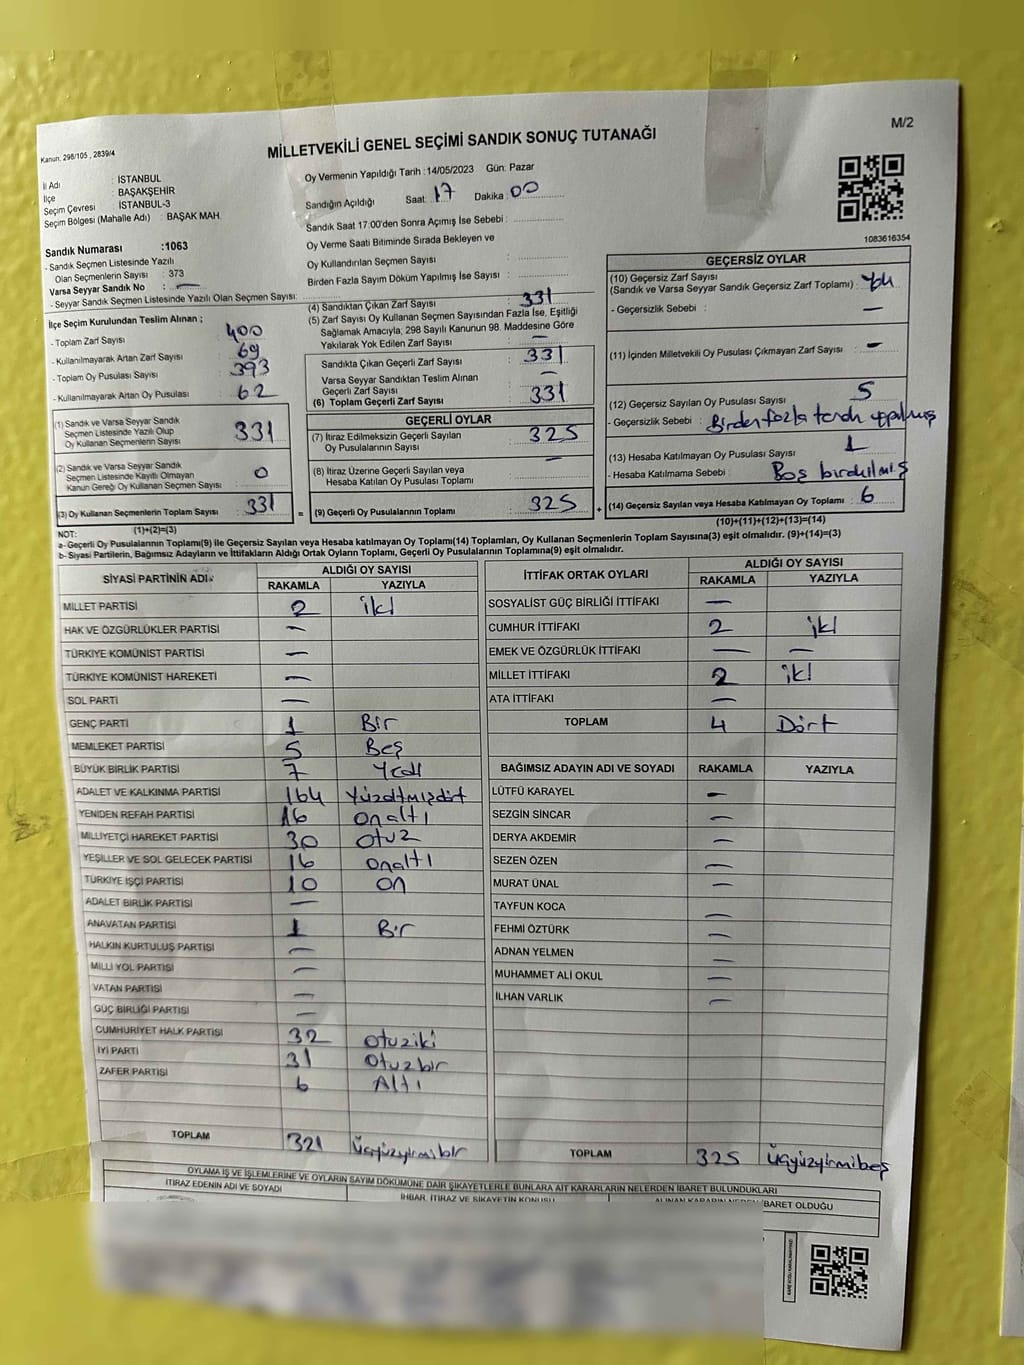 M/2
Kanun. 298/105 , 2839/4
MİLLETVEKİLİ GENEL SEÇİMİ SANDIK SONUÇ TUTANAĞI
İl Adı : İSTANBUL
İlçe : BAŞAKŞEHİR
Seçim Çevresi : İSTANBUL-3
Seçim Bölgesi (Mahalle Adı) : BAŞAK MAH.
Sandık Numarası :1063
- Sandık Seçmen Listesinde Yazılı
Olan Seçmenlerin Sayısı : 373
Varsa Seyyar Sandık No : —
- Seyyar Sandık Seçmen Listesinde Yazılı Olan Seçmen Sayısı:
Oy Vermenin Yapıldığı Tarih : 14/05/2023 Gün: Pazar
Sandığın Açıldığı Saat 17 Dakika 00
Sandık Saat 17:00'den Sonra Açımış İse Sebebi :
Oy Verme Saati Bitiminde Sırada Bekleyen ve
Oy Kullandırılan Seçmen Sayısı :
Birden Fazla Sayım Döküm Yapılmış İse Sayısı :
1083616354
İlçe Seçim Kurulundan Teslim Alınan ;
- Toplam Zarf Sayısı : 400
- Kullanılmayarak Artan Zarf Sayısı : 69
- Toplam Oy Pusulası Sayısı : 393
- Kullanılmayarak Artan Oy Pusulası : 62
(1) Sandık ve Varsa Seyyar Sandık
Seçmen Listesinde Yazılı Olup
Oy Kullanan Seçmenlerin Sayısı : 331
(2) Sandık ve Varsa Seyyar Sandık
Seçmen Listesinde Kayıtlı Olmayan
Kanun Gereği Oy Kullanan Seçmen Sayısı : 0
(3) Oy Kullanan Seçmenlerin Toplam Sayısı : 331
(1)+(2)=(3)
(4) Sandıktan Çıkan Zarf Sayısı : 331
(5) Zarf Sayısı Oy Kullanan Seçmen Sayısından Fazla İse, Eşitliği
Sağlamak Amacıyla; 298 Sayılı Kanunun 98. Maddesine Göre
Yakılarak Yok Edilen Zarf Sayısı : —
Sandıkta Çıkan Geçerli Zarf Sayısı : 331
Varsa Seyyar Sandıktan Teslim Alınan
Geçerli Zarf Sayısı : —
(6) Toplam Geçerli Zarf Sayısı : 331
GEÇERLİ OYLAR
(7) İtiraz Edilmeksizin Geçerli Sayılan
Oy Pusulalarının Sayısı : 325
(8) İtiraz Üzerine Geçerli Sayılan veya
Hesaba Katılan Oy Pusulası Toplamı : —
= (9) Geçerli Oy Pusulalarının Toplamı : 325 +
GEÇERSİZ OYLAR
(10) Geçersiz Zarf Sayısı
(Sandık ve Varsa Seyyar Sandık Geçersiz Zarf Toplamı) : Yok
- Geçersizlik Sebebi : —
(11) İçinden Milletvekili Oy Pusulası Çıkmayan Zarf Sayısı : —
(12) Geçersiz Sayılan Oy Pusulası Sayısı : 5
- Geçersizlik Sebebi : Birden fazla tercih yapılmış
(13) Hesaba Katılmayan Oy Pusulası Sayısı : 1
- Hesaba Katılmama Sebebi : Boş bırakılmış
(14) Geçersiz Sayılan veya Hesaba Katılmayan Oy Toplamı : 6
(10)+(11)+(12)+(13)=(14)
NOT:
a- Geçerli Oy Pusulalarının Toplamı(9) ile Geçersiz Sayılan veya Hesaba katılmayan Oy Toplamı(14) Toplamları, Oy Kullanan Seçmenlerin Toplam Sayısına(3) eşit olmalıdır. (9)+(14)=(3)
b- Siyasi Partilerin, Bağımsız Adayların ve İttifakların Aldığı Ortak Oyların Toplamı, Geçerli Oy Pusulalarının Toplamına(9) eşit olmalıdır.
SİYASİ PARTİNİN ADI ALDIĞI OY SAYISI
RAKAMLA YAZIYLA
MİLLET PARTİSİ 2 iki
HAK VE ÖZGÜRLÜKLER PARTİSİ —
TÜRKİYE KOMÜNİST PARTİSİ —
TÜRKİYE KOMÜNİST HAREKETİ —
SOL PARTİ —
GENÇ PARTİ 1 Bir
MEMLEKET PARTİSİ 5 Beş
BÜYÜK BİRLİK PARTİSİ 7 Yedi
ADALET VE KALKINMA PARTİSİ 164 Yüzaltmışdört
YENİDEN REFAH PARTİSİ 16 onaltı
MİLLİYETÇİ HAREKET PARTİSİ 30 otuz
YEŞİLLER VE SOL GELECEK PARTİSİ 16 onaltı
TÜRKİYE İŞÇİ PARTİSİ 10 on
ADALET BİRLİK PARTİSİ —
ANAVATAN PARTİSİ 1 Bir
HALKIN KURTULUŞ PARTİSİ —
MİLLİ YOL PARTİSİ —
VATAN PARTİSİ —
GÜÇ BİRLİĞİ PARTİSİ —
CUMHURİYET HALK PARTİSİ 32 otuziki
İYİ PARTİ 31 otuzbir
ZAFER PARTİSİ 6 Altı
TOPLAM 321 üçyüzyirmibir
İTTİFAK ORTAK OYLARI ALDIĞI OY SAYISI
RAKAMLA YAZIYLA
SOSYALİST GÜÇ BİRLİĞİ İTTİFAKI —
CUMHUR İTTİFAKI 2 iki
EMEK VE ÖZGÜRLÜK İTTİFAKI — —
MİLLET İTTİFAKI 2 iki
ATA İTTİFAKI —
TOPLAM 4 Dört
BAĞIMSIZ ADAYIN ADI VE SOYADI RAKAMLA YAZIYLA
LÜTFÜ KARAYEL —
SEZGİN SİNCAR —
DERYA AKDEMİR —
SEZEN ÖZEN —
MURAT ÜNAL —
TAYFUN KOCA —
FEHMİ ÖZTÜRK —
ADNAN YELMEN —
MUHAMMET ALİ OKUL —
İLHAN VARLIK —
TOPLAM 325 üçyüzyirmibeş
OYLAMA İŞ VE İŞLEMLERİNE VE OYLARIN SAYIM DÖKÜMÜNE DAİR ŞİKAYETLERLE BUNLARA AİT KARARLARIN NELERDEN İBARET BULUNDUKLARI
İTİRAZ EDENİN ADI VE SOYADI
İHBAR, İTİRAZ VE ŞİKAYETİN KONUSU
ALINAN KARARIN NEDEN İBARET OLDUĞU